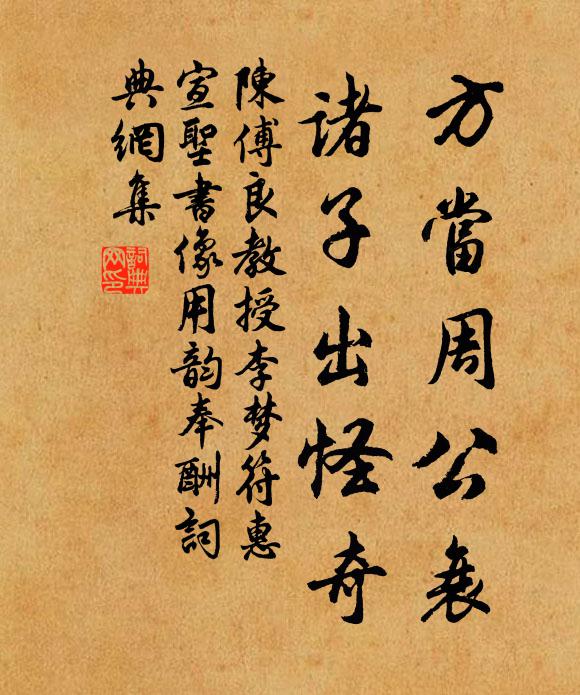 方當周公衰
諸子出怪奇
陳傅良教授李梦符惠
宣聖書像用韵奉酬詞
典網集
詞典网印